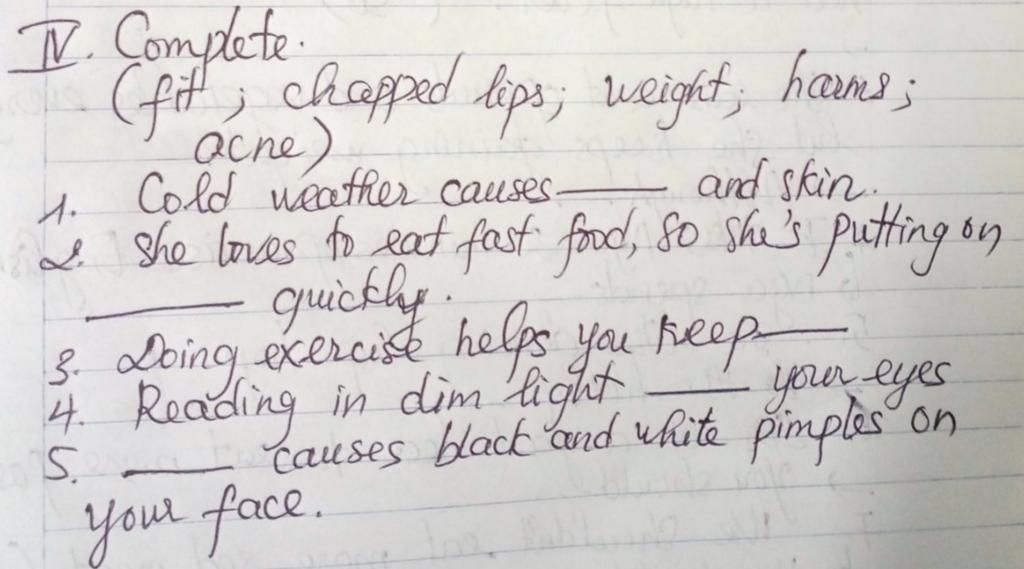 IV. Complete.
(fit; chapped lips; weight; harms;
acne)
1. Cold weather causes ____ and skin.
2. She loves to eat fast food, so she's putting on
____ quickly.
3. Doing exercise helps you keep ____
4. Reading in dim light ____ your eyes
5. ____ causes black and white pimples on
your face.